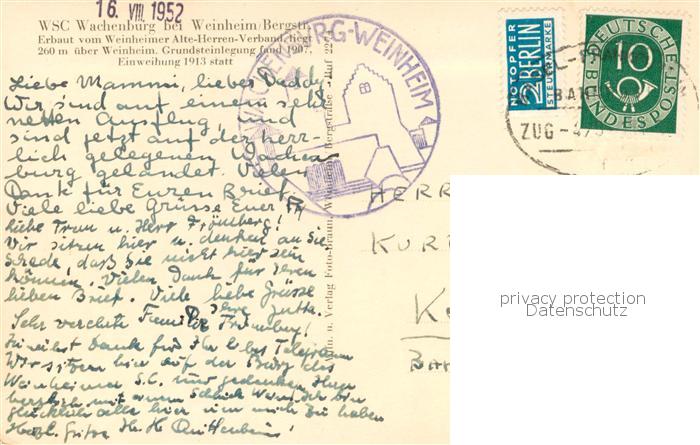 16. VIII. 1952
WSC Wachenburg bei Weinheim/Bergstr.
Erbaut vom Weinheimer Alte-Herren-Verband, liegt
260 m über Weinheim. Grundsteinlegung fand 1907,
Einweihung 1913 statt
WACHENBURG-WEINHEIM
NOTOPFER
2 BERLIN
STEUERMARKE
DEUTSCHE
10
BUNDESPOST
ZUG
Liebe Mammi, lieber Daddy!
Wir sind auf einem sehr
netten Ausflug und
sind jetzt auf der herr-
lich gelegenen Wachen
burg gelandet. Vielen
Dank für Euren Brief
Viele liebe Grüsse Euer
Liebe Frau u. Herr
Wir sitzen hier u. denken an Sie
Schade, daß Sie nicht hier sein
können. Vielen Dank für Ihren
lieben Brief. Viele liebe Grüsse
Ihre Jutta.
Sehr verehrte Familie
Dank für Ihr liebes Telegramm
Wir sitzen hier auf der Burg des
Weinheimer S.C. und gedenken Ihrer
herzlich mit
glücklich alle hier um mich zu haben
Herzl. Grüße Ihr
Foto-Braun, Weinheim Bergstraße - Ruf
n. Verlag
HERR
KUR
K
BA
privacy protection
Datenschutz